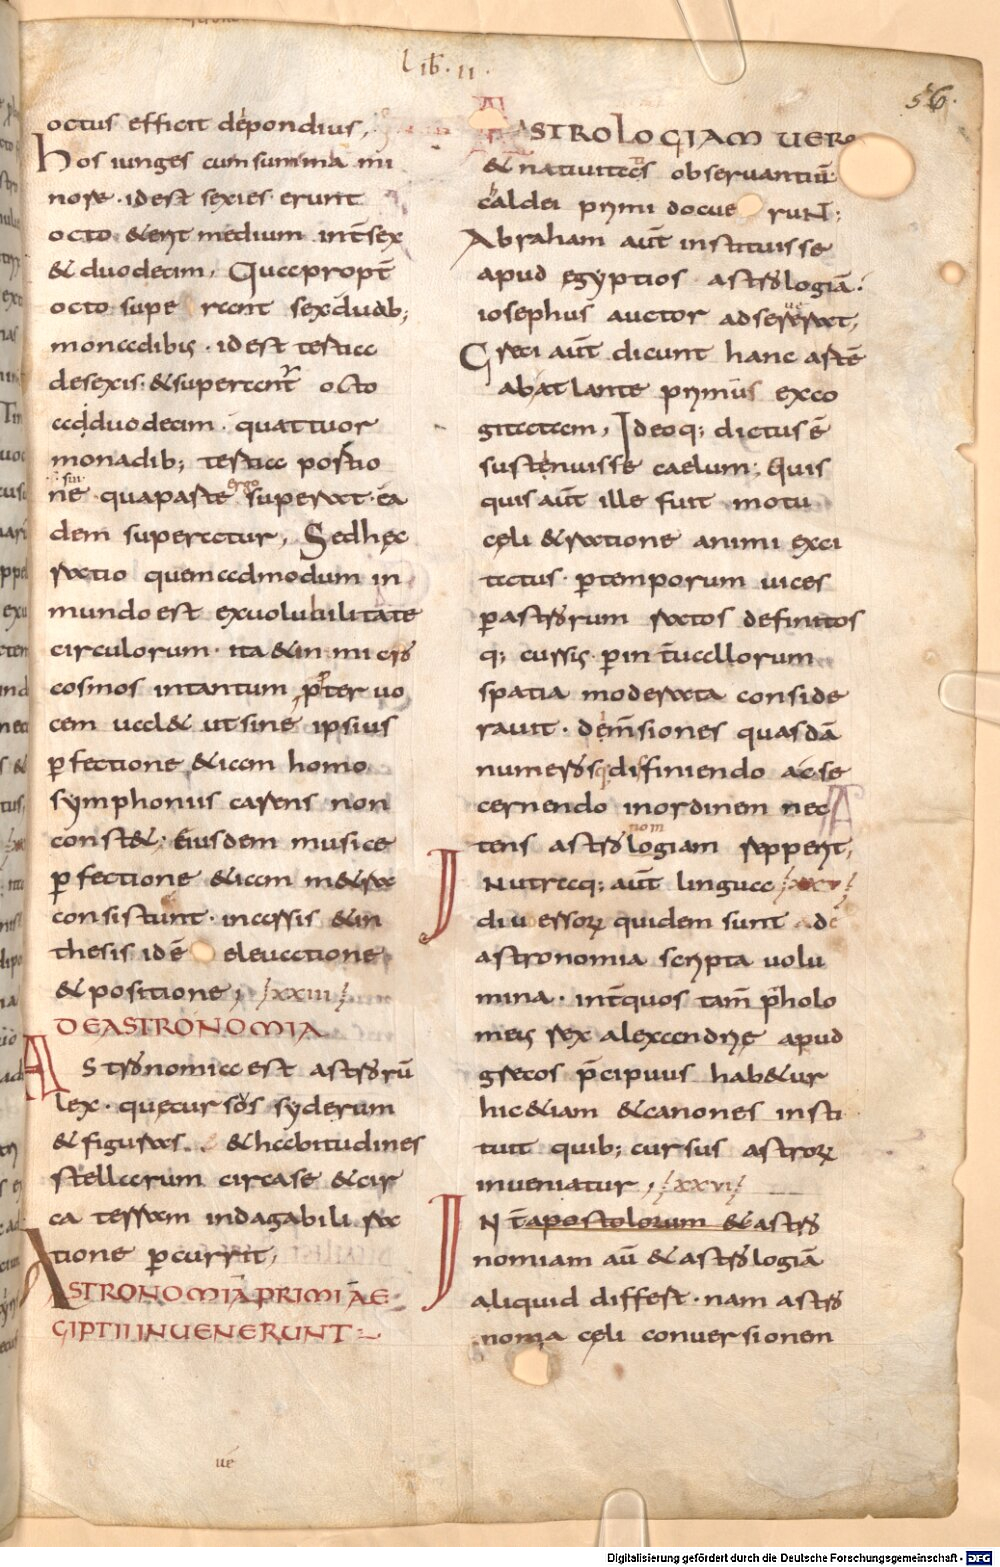 lib. II.
56.
octus efficit depondius,
hos iunges cum summa mi
nore. idest sexies erunt
octo & erit medium int sex
& duodecim, Quae propt
octo superant sex duab;
monadibus. idest tertia
desexis. & superant octo
ad duodecim. quattuor
monadib; tertia portio
ne qua parte ergo superat. ea
dem superatur, Sed hęc
ratio quemadmodum in
mundo est ex uolubilitate
circulorum. ita & in micro
cosmos intantum pter uo
cem ual& ut sine ipsius
pfectione &iam homo
symphoniis carens non
const&. Eiusdem musice
pfectione &iam m&ra
consistunt. in arsis & in
thesis id ē eleuatione
& positione, xxiiii
DE ASTRONOMIA
Astronomia est astrorū
lex. quae cursos syderum
& figuras & habitudines
stellarum circa se & cir
ca terram indagabili ra
tione pcurrit,
ASTRONOMIĀ PRIMI AE
GIPTII INUENERUNT
ASTROLOGIAM UERO
& natiuitatis obseruantiū
caldei primi docuerunt;
Abraham aūt instituisse
apud egyptios astrologiā.
iosephus auctor adseuerat,
Greci aūt dicunt hanc artē
ab atlante primus exco
gitatam, Ideoq; dictus ē
sustenuisse caelum; Quis
quis aūt ille fuit motu
cęli & ratione animi exci
tatus ptemporum uices
pastrorum ratos definitos
q; cursis. p interuallorum
spatia moderata conside
rauit. demsiones quasdā
numeros q; diffiniendo ac se
cernendo in ordinem nec
tens astrologiam repperit,
IN utraq; aūt lingua xxv
diuersorum quidem sunt de
astronomia scripta uolu
mina. int quos tam ptholo
meus rex alexandrię apud
grecos pcipuus hab&ur
hic &iam & canones insti
tuit quib; cursus astrorum
inueniatur, xxvi
INt apostolorum & astro
nomiam aū & astrologiā
aliquid differt. nam astro
noma cęli conuersionem
ue
Digitalisierung gefördert durch die Deutsche Forschungsgemeinschaft - DFG